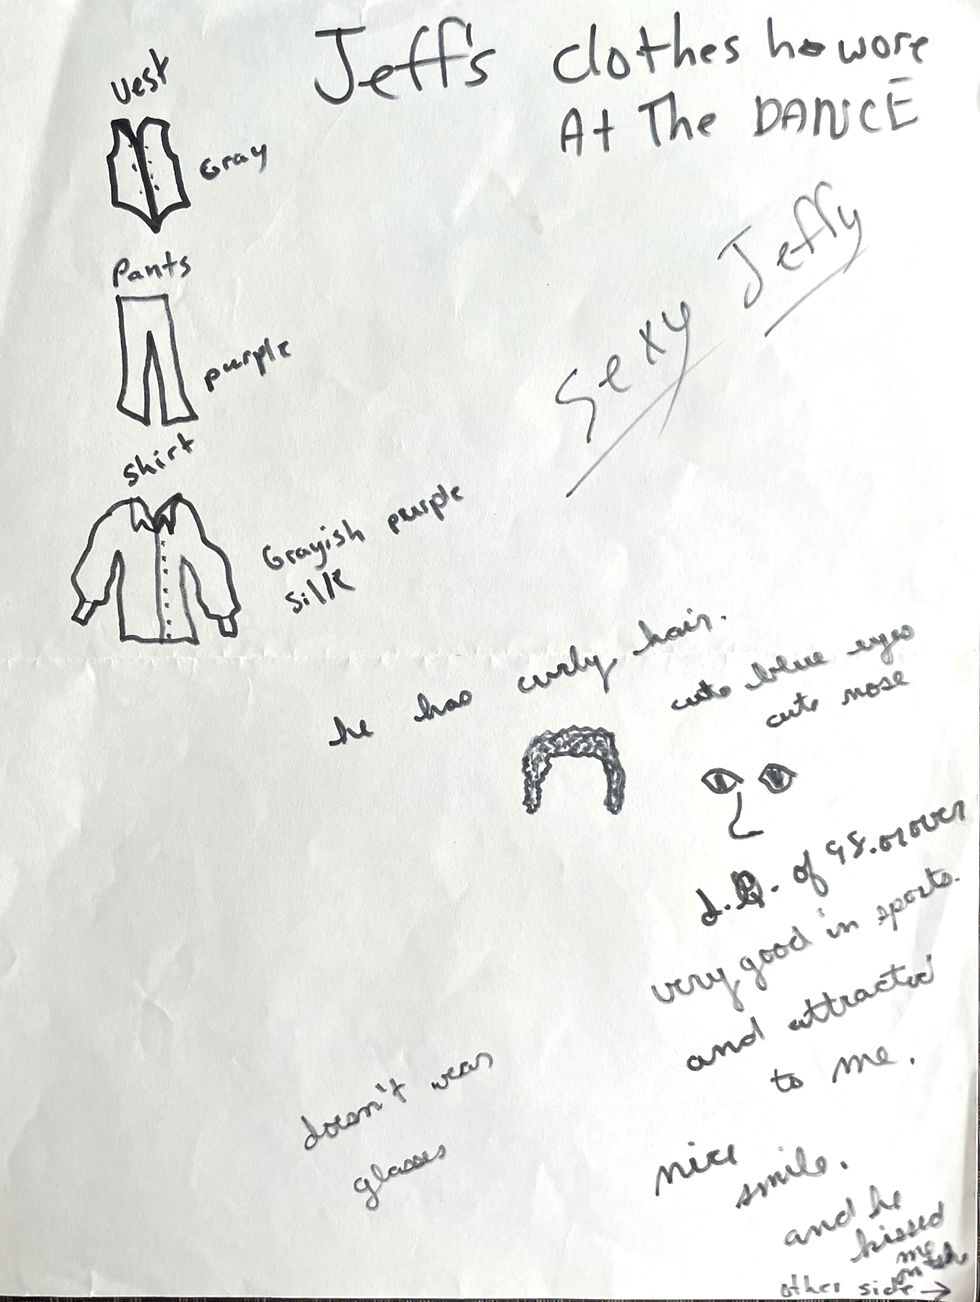 Jeff's clothes he wore
At The DANCE
vest
Gray
Pants
purple
shirt
Grayish purple
silk
Sexy Jeffy
he has curly hair.
cute blue eyes
cute nose
I.Q. of 98. or over
very good in sports.
and attracted
to me.
doesn't wear
glasses
nice
smile.
and he
kissed
me
on teh
other side →